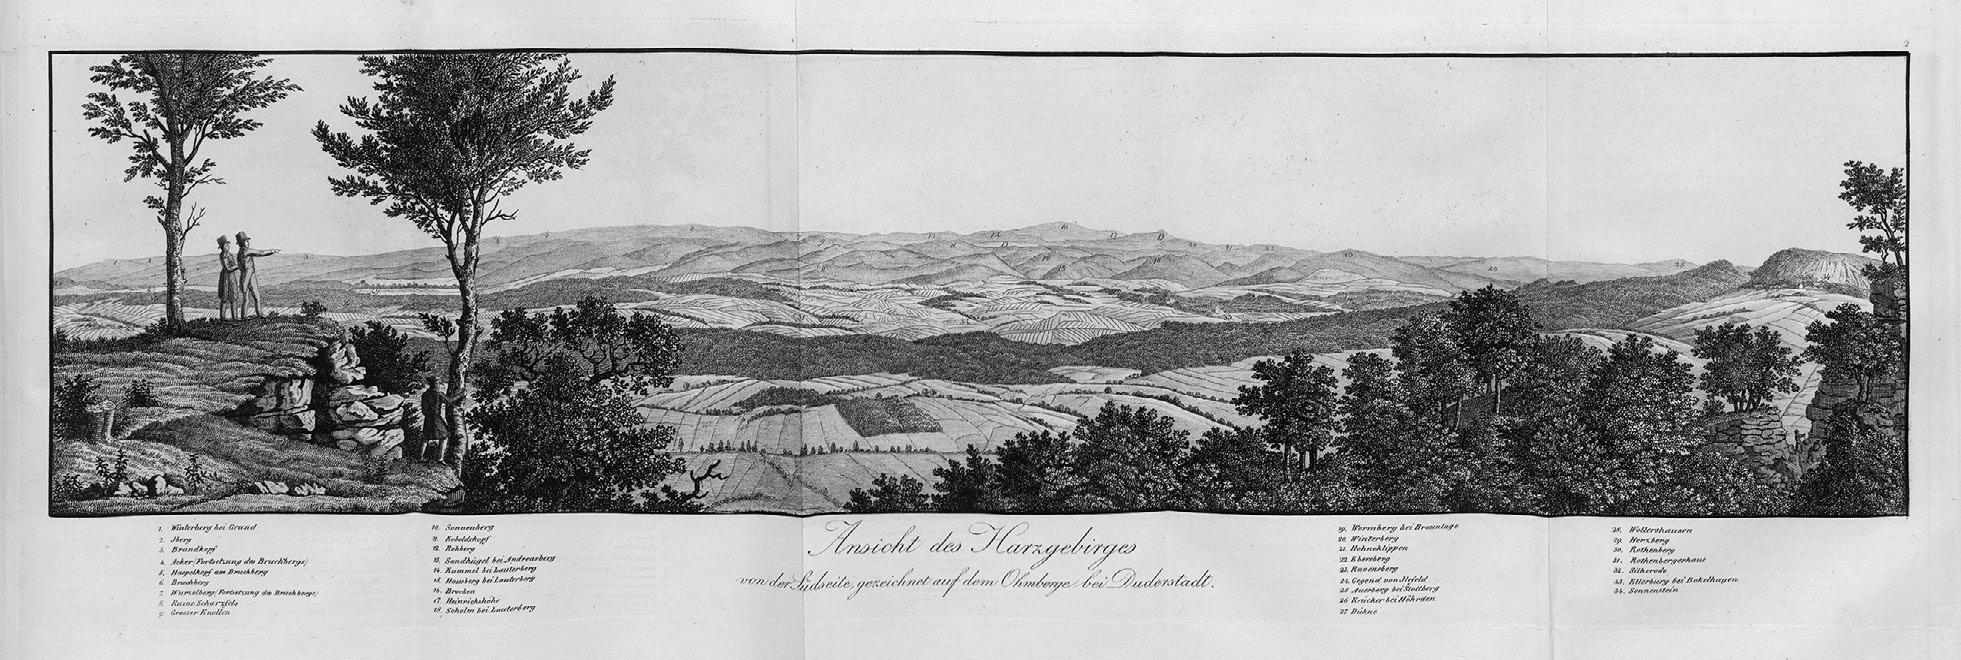 Ansicht des Harzgebirges
von der Südseite, gezeichnet auf dem Ohmberge bei Duderstadt.
1. Winterberg bei Grund
2. Jberg
3. Brandkopf
4. Acker (Fortsetzung des Bruchbergs)
5. Haspelkopf am Bruchberg
6. Bruchberg
7. Wurmberg (Fortsetzung des Bruchbergs)
8. Ruine Scharzfels
9. Grosser Knollen
10. Sonnenberg
11. Koboldskopf
12. Rehberg
13. Sandhügel bei Andreasberg
14. Kummel bei Lauterberg
15. Hausberg bei Lauterberg
16. Brocken
17. Heinrichshöhe
18. Scholm bei Lauterberg
19. Wormberg bei Braunlage
20. Winterberg
21. Hohneklippen
22. Ebersberg
23. Ravensberg
24. Gegend von Ilefeld
25. Auerberg bei Stollberg
26. Krücker bei Höhrden
27. Dühne
28. Wollershausen
29. Herzberg
30. Rothenberg
31. Rothenbergerhaus
32. Silkerode
33. Ellerburg bei Bokelhagen
34. Sonnenstein